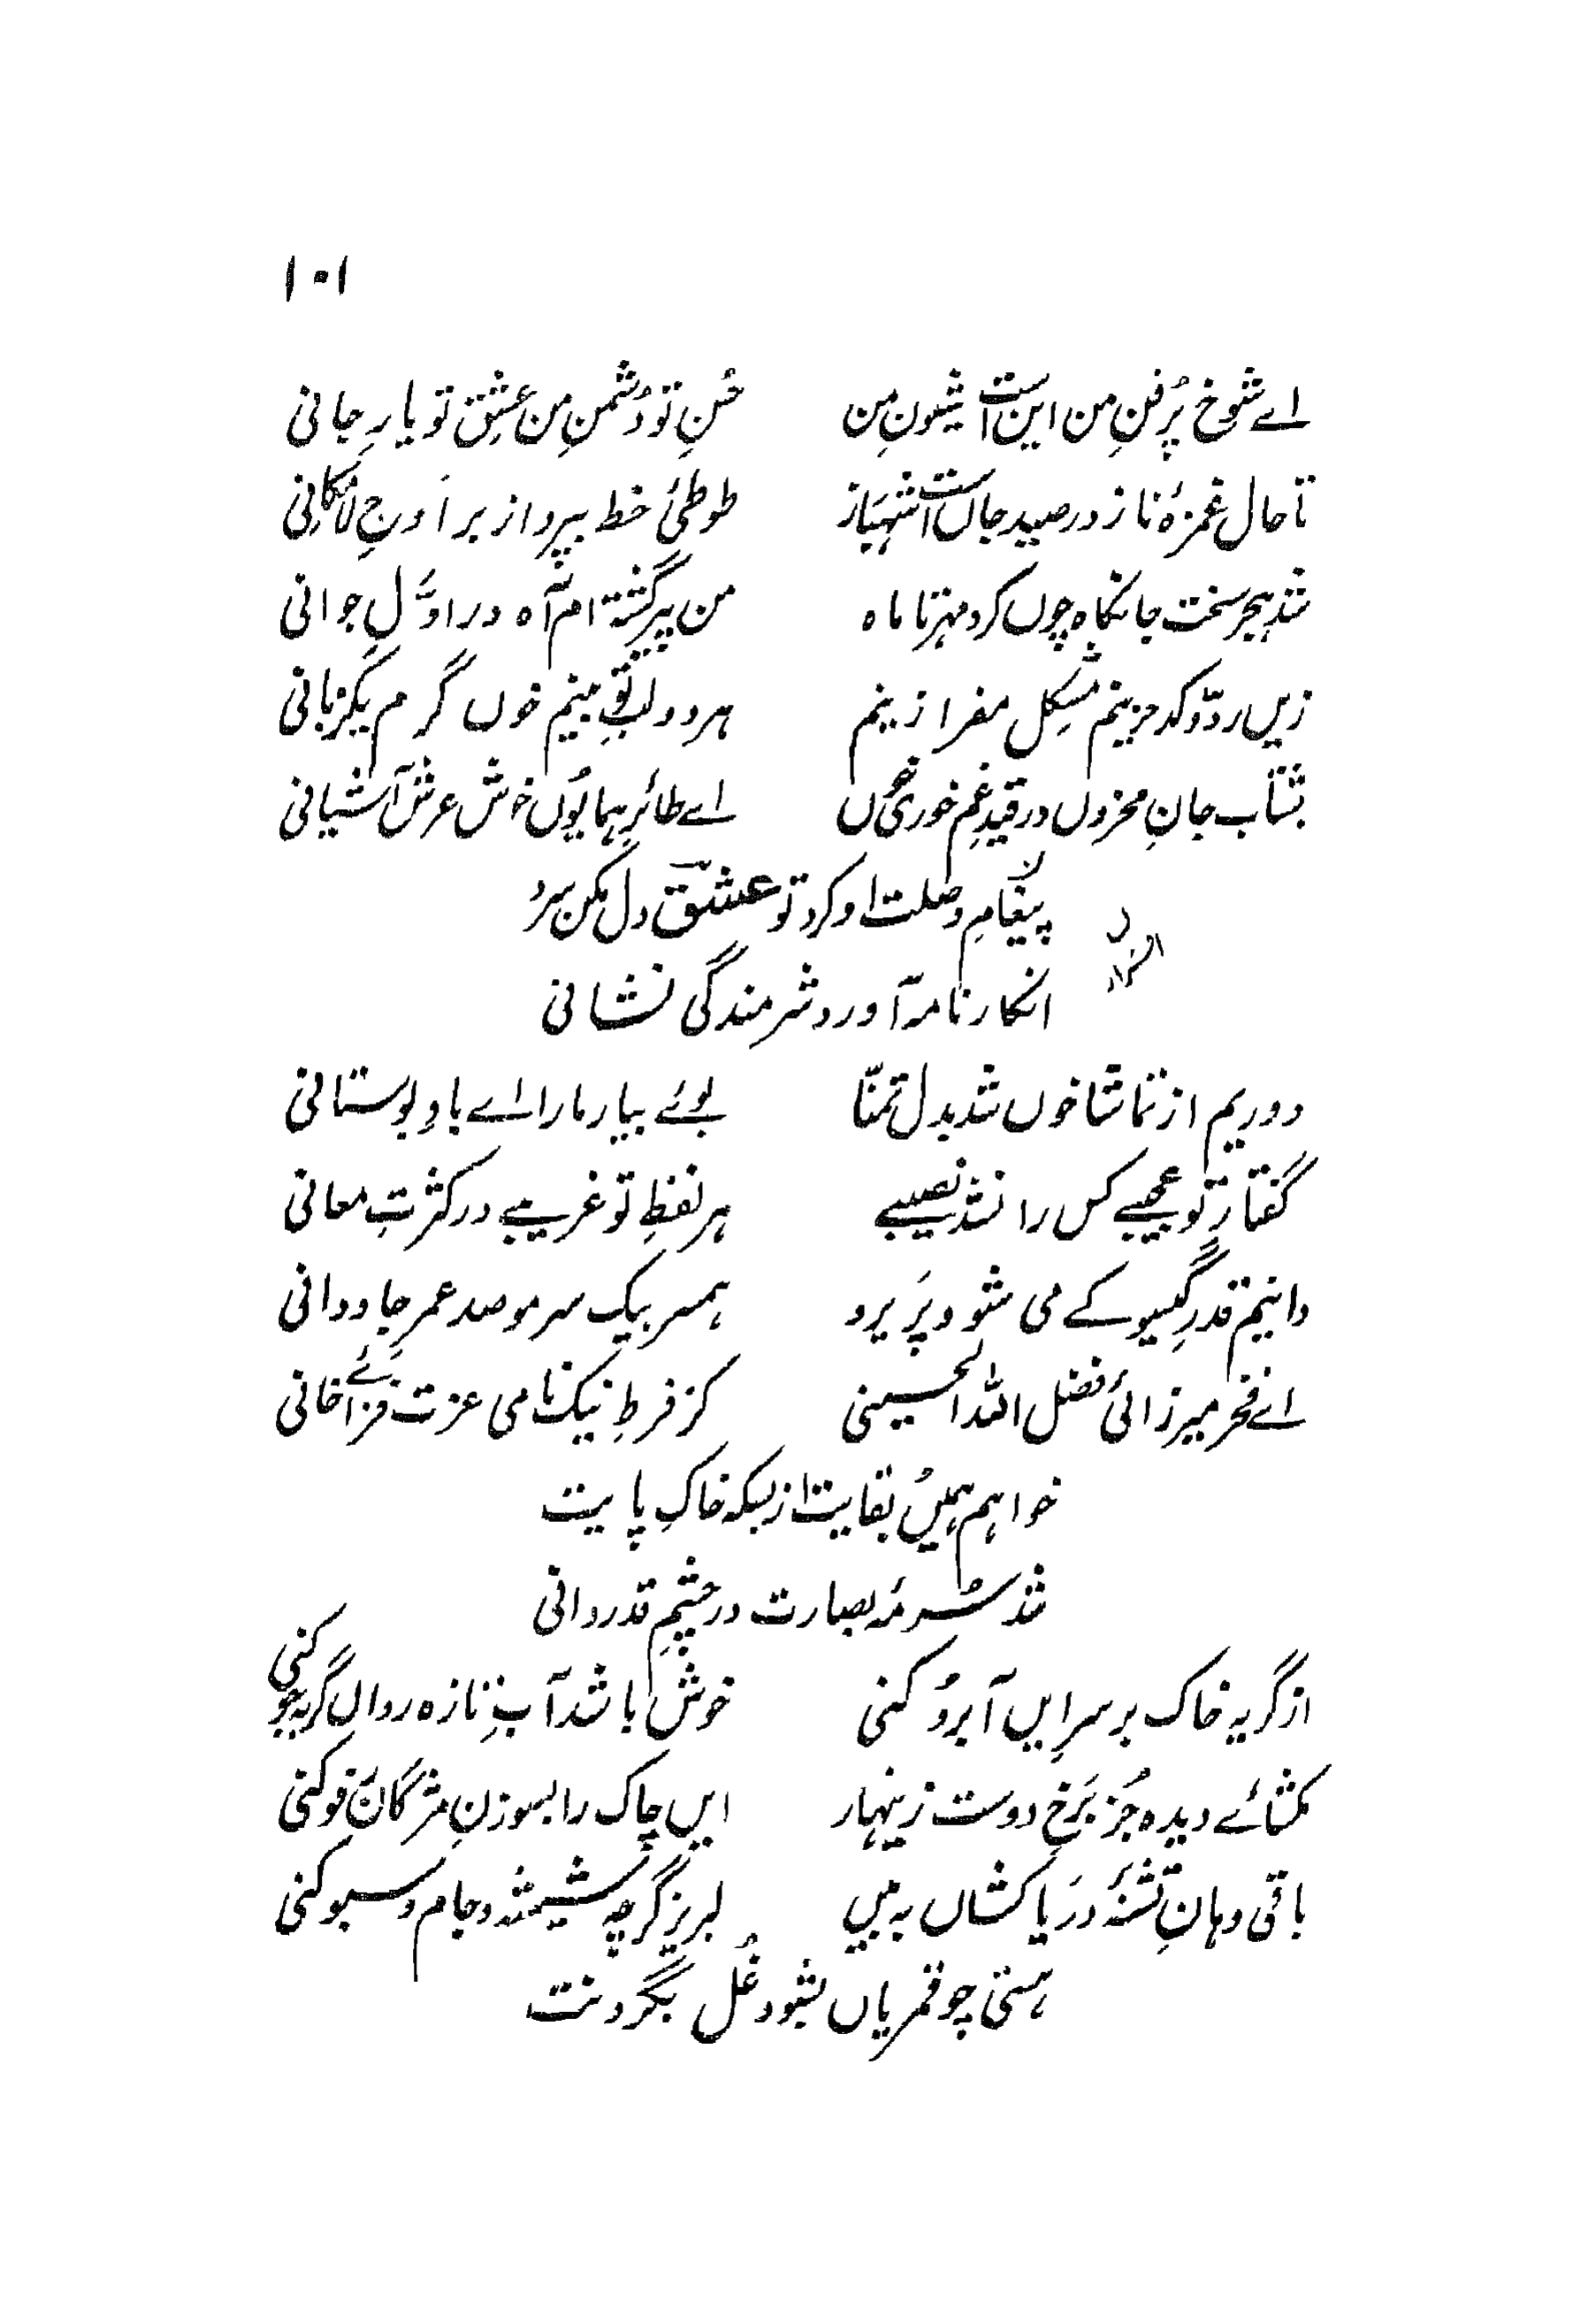 ۱۰۱
اے شوخ پُر فنِ من این است شیونِ من حُسنِ تو دُشمنِ من عشقِ تو یارِ جانی
تا حال غمزۂ ناز در صید جاں است شہباز طوطیٔ خط بپرواز بر اَوجِ لامکانی
شد ہجر سخت جانکاہ چوں کرد مہر تا ماہ من پیر گشتہ ام آہ در اوّلِ جوانی
زیں ردّ و کد حزینم مشکل مفر ازینم ہر دو لبِ تو بینم خوں گرم یکزبانی
بشتاب جانِ محزوں در قیدِ غم خوری خوں اے طائرِ ہمایوں خوش عرش آشیانی
پیغامِ وصلت او کرد تو عشق دل مکن سرد
انکار نامہ آورد شرمندگی نشانی
دوریم از تماشا خوں شد بدل تمنّا بوئے بیار ما را اے بادِ بوستانی
گفتارِ تو عجیبے کس را نشد نصیبے ہر لفظِ تو غریبے در کثرتِ معانی
دانیم قدرِ گیسو کے می شود پَر یرو ہمسر بیک سر مو صد عمرِ جاودانی
اے فخر میرزائی فضل اللہ الحسینی کز فرطِ نیک نامی عزت فزائے خانی
خواہم ہمیں بقایت از بسکہ خاکِ پایت
شد سُرمۂ بصارت در چشمِ قدردانی
از گریہ خاک بر سرِ ایں آبرو کنی خوش باشد آبِ تازہ رواں گر بجو کنی
مکشائے دیدہ جُز بَرخِ دوست زینہار ایں چاک را بسوزنِ مژگاں رفو کنی
باقی دہانِ تشنۂ دریا کشاں بہ بیں لبریز گرچہ شیشہ و جام و سبو کنی
ہستی چو قمریاں نشود غُل بگردنت